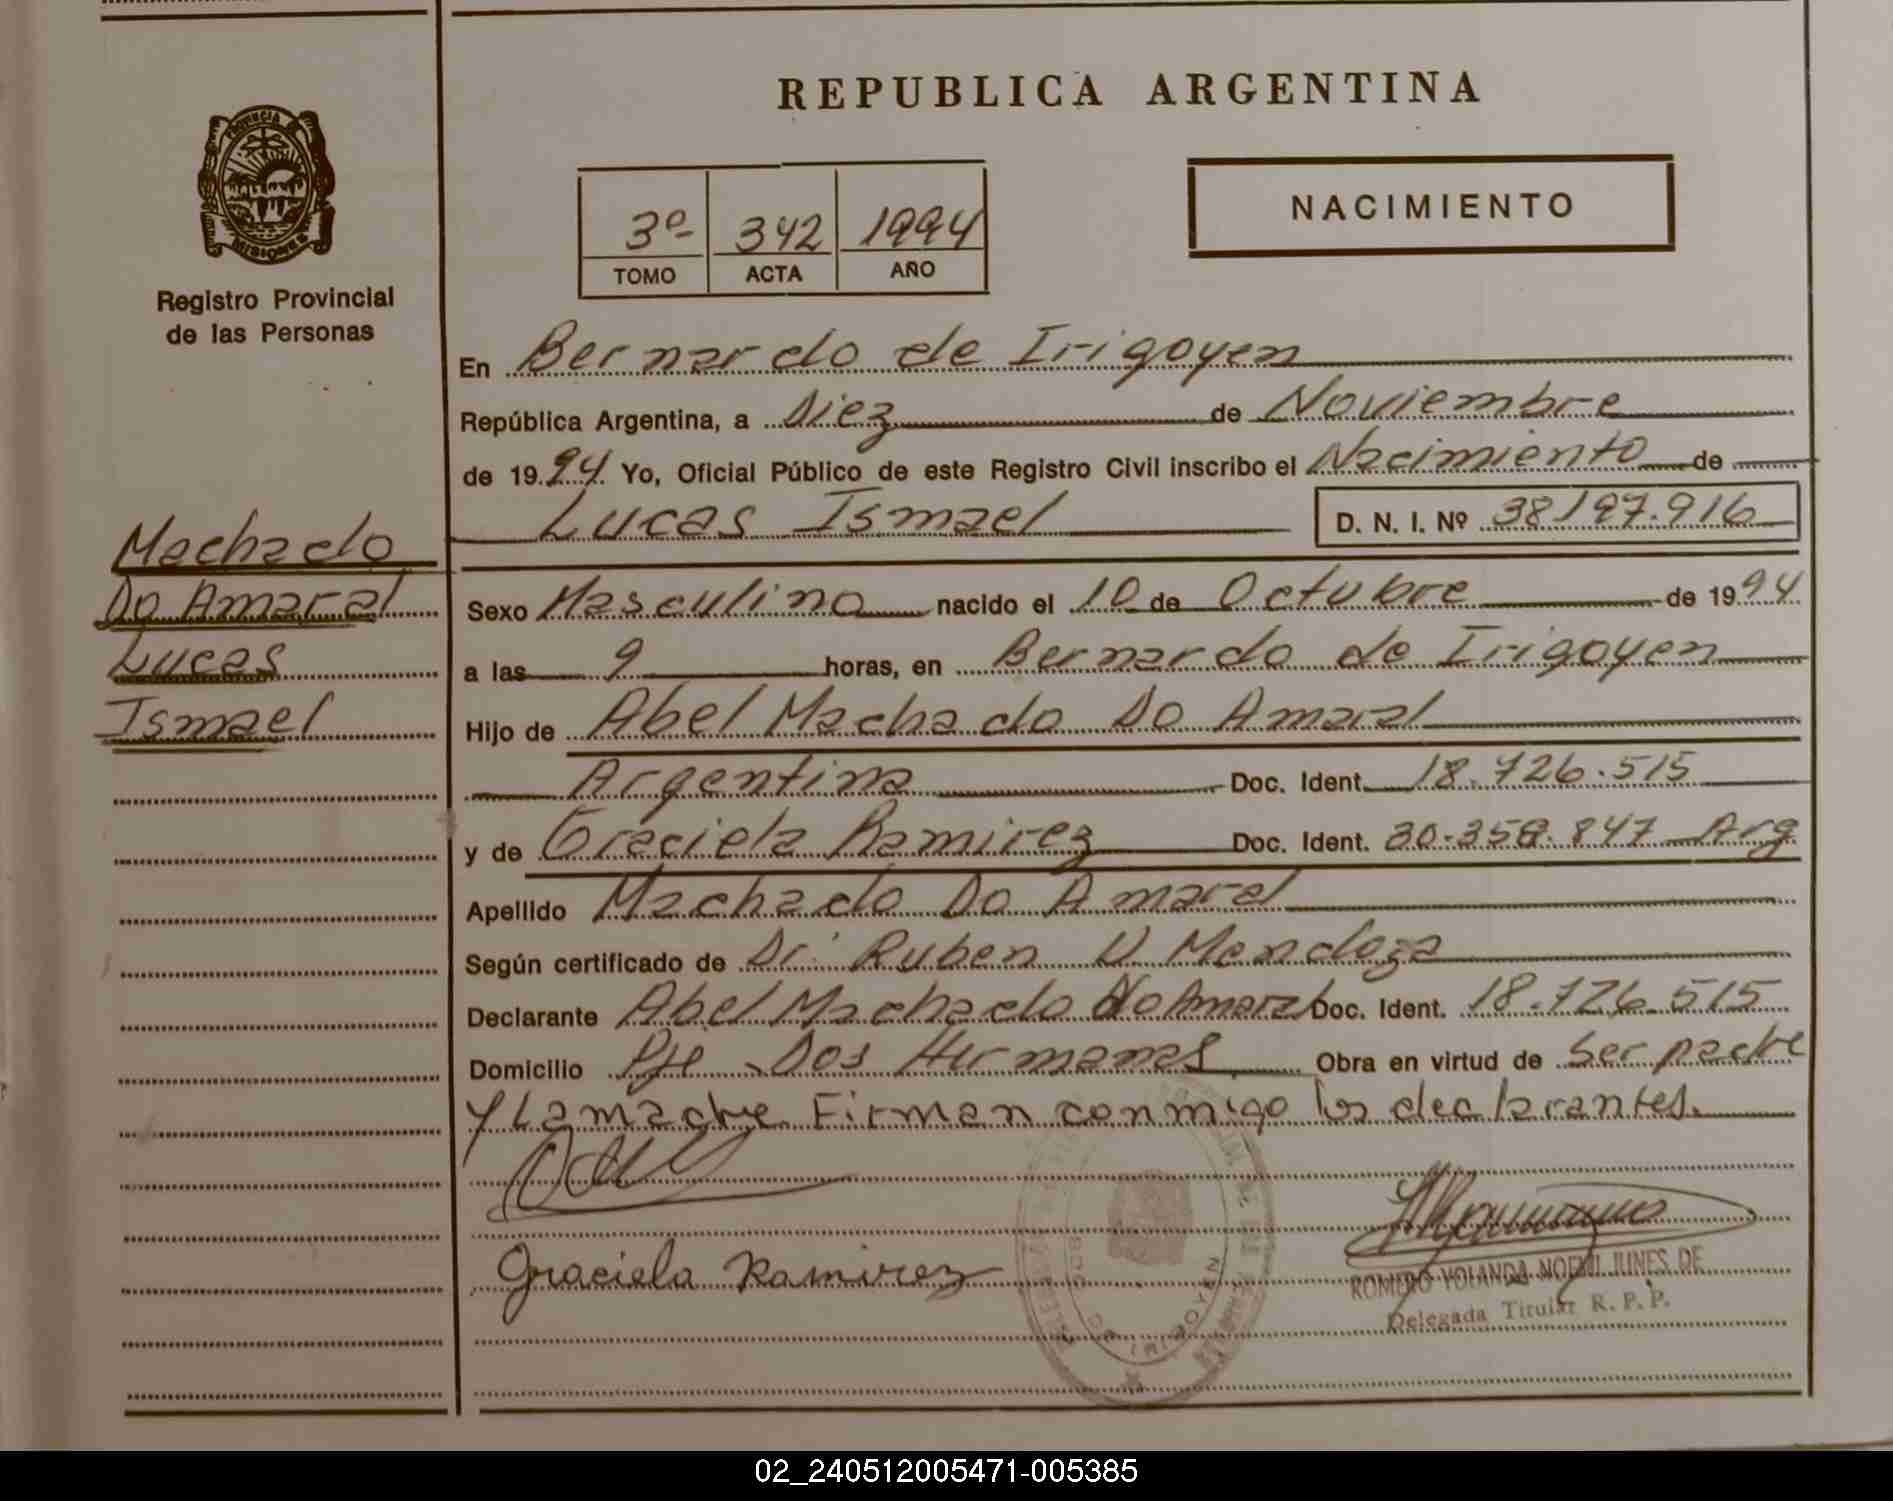 REPUBLICA ARGENTINA
PROVINCIA DE
MISIONES
Registro Provincial
de las Personas
3º 342 1994
TOMO ACTA AÑO
NACIMIENTO
En Bernardo de Irigoyen
República Argentina, a Diez de Noviembre
de 1994 Yo, Oficial Público de este Registro Civil inscribo el Nacimiento de
Lucas Ismael D. N. I. Nº 38197.916
Machado
Do Amaral
Lucas
Ismael
Sexo Masculino nacido el 10 de Octubre de 1994
a las 9 horas, en Bernardo de Irigoyen
Hijo de Abel Machado Do Amaral
Argentina Doc. Ident. 18.726.515
y de Graciela Ramirez Doc. Ident. 30.358.847 Arg
Apellido Machado Do Amaral
Según certificado de Dr. Ruben D Mendoza
Declarante Abel Machado Do Amaral Doc. Ident. 18.726.515
Domicilio Pje Dos Hermanas Obra en virtud de Ser padre
y La madre. Firman conmigo los declarantes.
Graciela Ramirez
ROMERO YOLANDA NOEMI JUNES DE
Delegada Titular R. P. P.
02_240512005471-005385